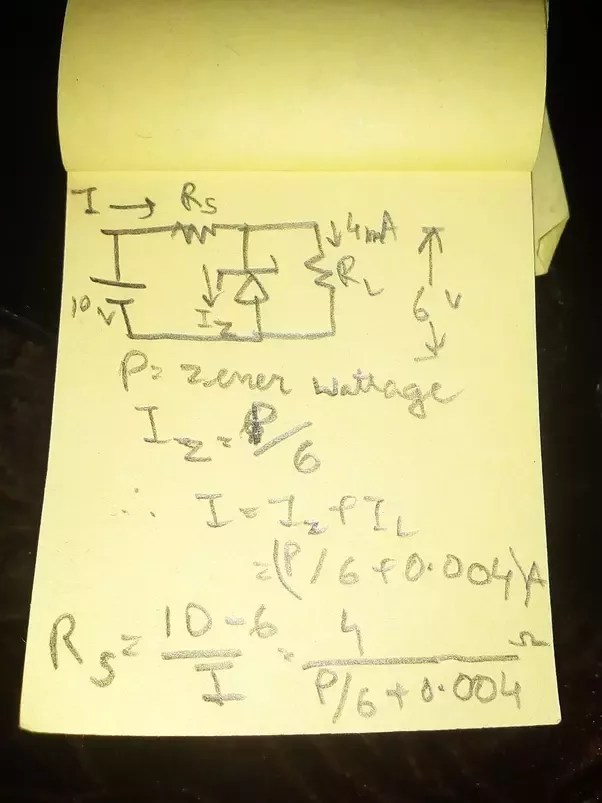 I → Rs
↓ 4mA
RL
10 V
Iz
6 V
P = zener wattage
Iz = P/6
∴ I = Iz + IL
= (P/6 + 0.004) A
Rs = 10-6/I = 4/P/6 + 0.004 Ω